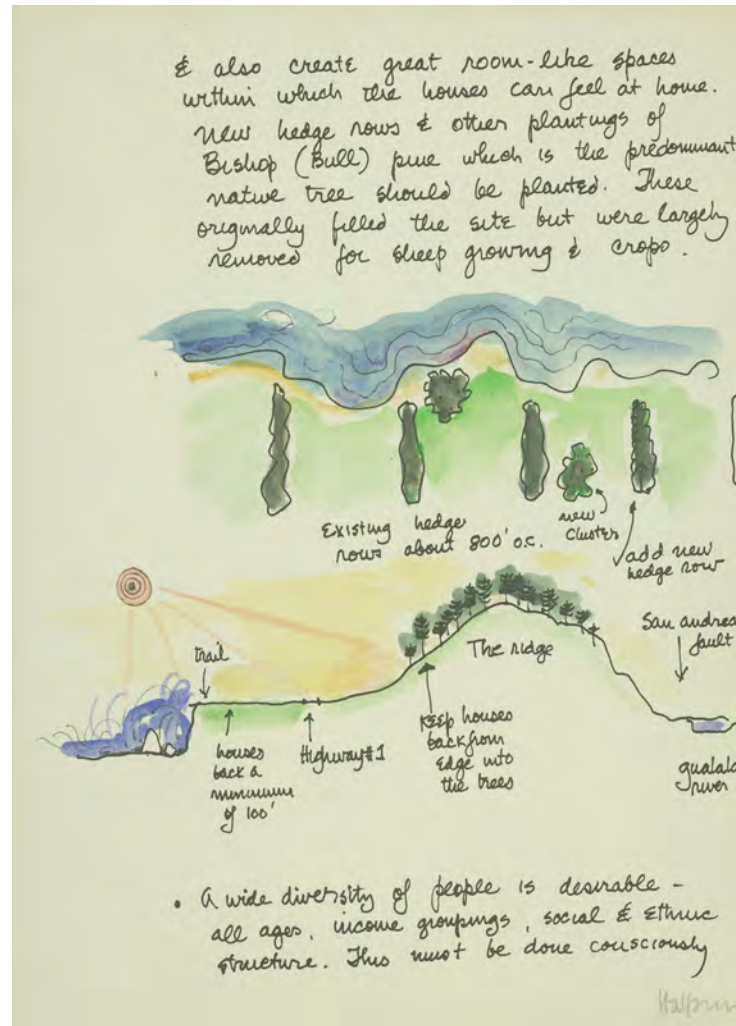 & also create great room-like spaces
within which the houses can feel at home.
New hedge rows & other plantings of
Bishop (Bull) pine which is the predominant
native tree should be planted. These
originally filled the site but were largely
removed for sheep growing & crops.
Existing hedge
rows about 800' o.c.
new
cluster
add new
hedge row
trail
The ridge
San andrea
fault
houses
back a
minimum
of 100'
Highway #1
Keep houses
back from
edge into
the trees
gualala
river
• A wide diversity of people is desirable -
all ages, income groupings, social & ethnic
structure. This must be done consciously
Halprin